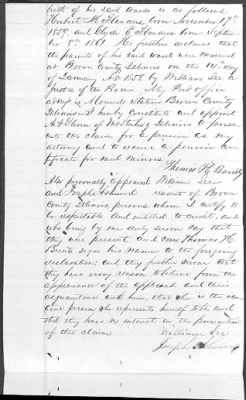 birth of his said wards is as follows
Herbert M. Flanders, born November 17th
1859, and Clyde Flanders born Septem
ber 5th 1861. He further declares that
the parents of his said wards are married
at Boone County Illinois on the 10th day
of January A.D 1855 by William Lee a
Justice of the Peace. My Post office
address is Boone County
Illinois. I hereby constitute and appoint
of Illinois to prosecute
the claim for a pension as my
attorney and to receive a pension certi
ficate for said minors.
Thomas H.
Also personally appeared William Lee
and Joseph residents of Boone
County Illinois, persons whom I certify to
be respectable and entitled to credit, and
who being by me duly sworn say that
they were present and saw Thomas H
sign his name to the foregoing
declaration; and they further swear that
they have every reason to believe from the
appearance of the applicant and their
acquaintance with him, that he is the iden
tical person he represents himself to be and
that they have no interest in the prosecution
of this claim.
William Lee
Joseph